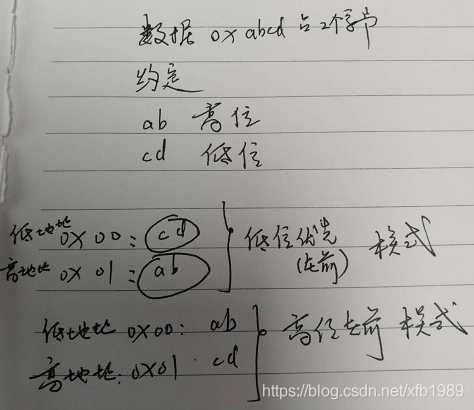 数据 0x abcd 占2个字节
约定
ab 高位
cd 低位
低地址 0x 00: cd
高地址 0x 01: ab
低位优先 模式
(在前)
低地址 0x00: ab
高地址: 0x01 cd
高位在前 模式
https://blog.csdn.net/xfb1989